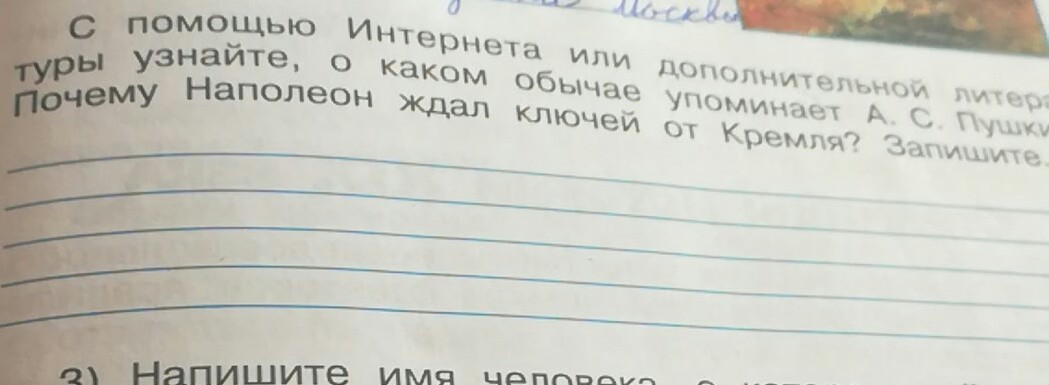 Москвы
С помощью Интернета или дополнительной литера
туры узнайте, о каком обычае упоминает А. С. Пушки
Почему Наполеон ждал ключей от Кремля? Запишите.
3) Напишите имя человека, о